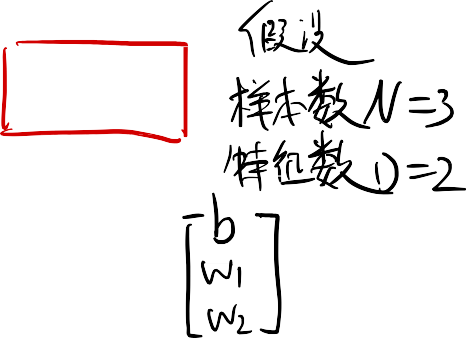 假设
样本数 N=3
特征数 D=2
b
w₁
w₂